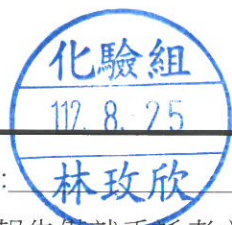 化驗組
112. 8. 25
林玫欣